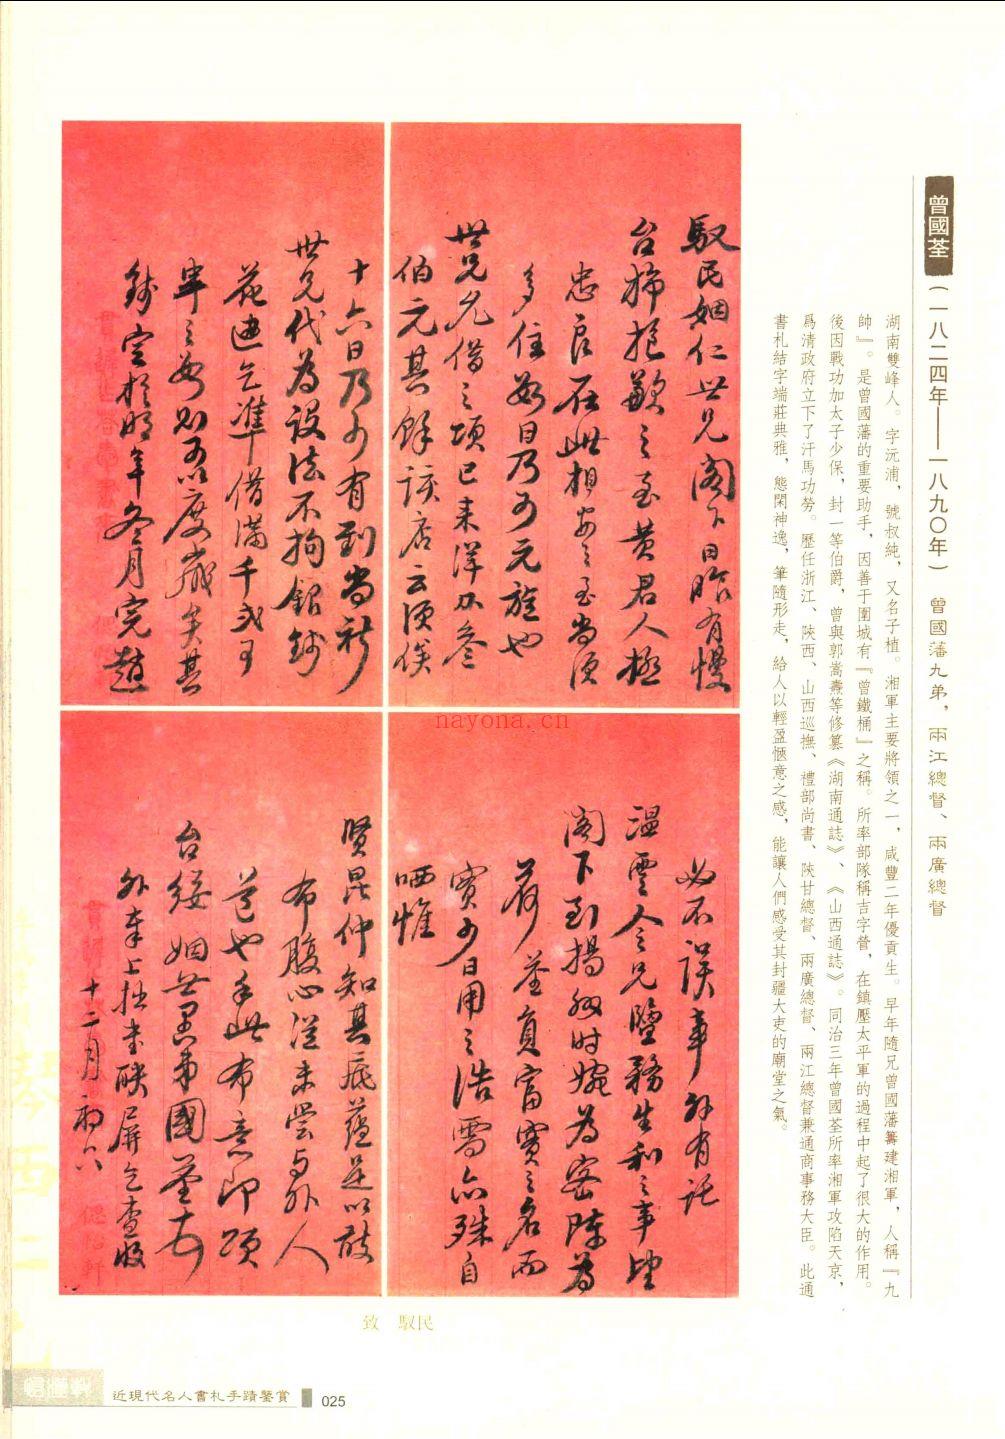 曾國荃（一八二四年——一八九〇年） 曾國藩九弟，兩江總督、兩廣總督
湖南雙峰人。字沅浦，號叔純，又名子植。湘軍主要將領之一，咸豐二年優貢生。早年隨兄曾國藩籌建湘軍，人稱『九
帥』。是曾國藩的重要助手，因善于圍城有『曾鐵桶』之稱。所率部隊稱吉字營，在鎮壓太平軍的過程中起了很大的作用。
後因戰功加太子少保，封一等伯爵，曾與郭嵩燾等修纂《湖南通誌》、《山西通誌》。同治三年曾國荃所率湘軍攻陷天京，
爲清政府立下了汗馬功勞。歷任浙江、陝西、山西巡撫、禮部尚書、陝甘總督、兩廣總督、兩江總督兼通商事務大臣。此通
書札結字端莊典雅，態閑神逸，筆隨形走，給人以輕盈愜意之感，能讓人們感受其封疆大吏的廟堂之氣。
馭民姻仁世兄閣下日昨有慢
台旆抱歉之至黄君人極
忠良在此相安之至尚須
多住數日乃可元旋也
世兄允借之項已来洋不叁
伯元其餘該店云須俟
十六日乃可有到尚祈
世兄代為設法不拘銀錢
花迪乞準借滿千或可
串之數則可以度歲矣其
錢定於明年冬月完趙
必不誤事外有託
溫雲仝兄鹽務生和之事望
閣下到揚州时婉為密陳為
荷荃負富實之名而
實少日用之浩需亦殊自
哂惟
賢昆仲知其底蘊足以敢
布腹心從未嘗与外人
道也手此布意即頌
台綏姻世愚弟國荃頓
外奉上拙書联屏乞查收
十二月初六
致 馭民
近現代名人書札手蹟鑒賞
025
nayona.cn